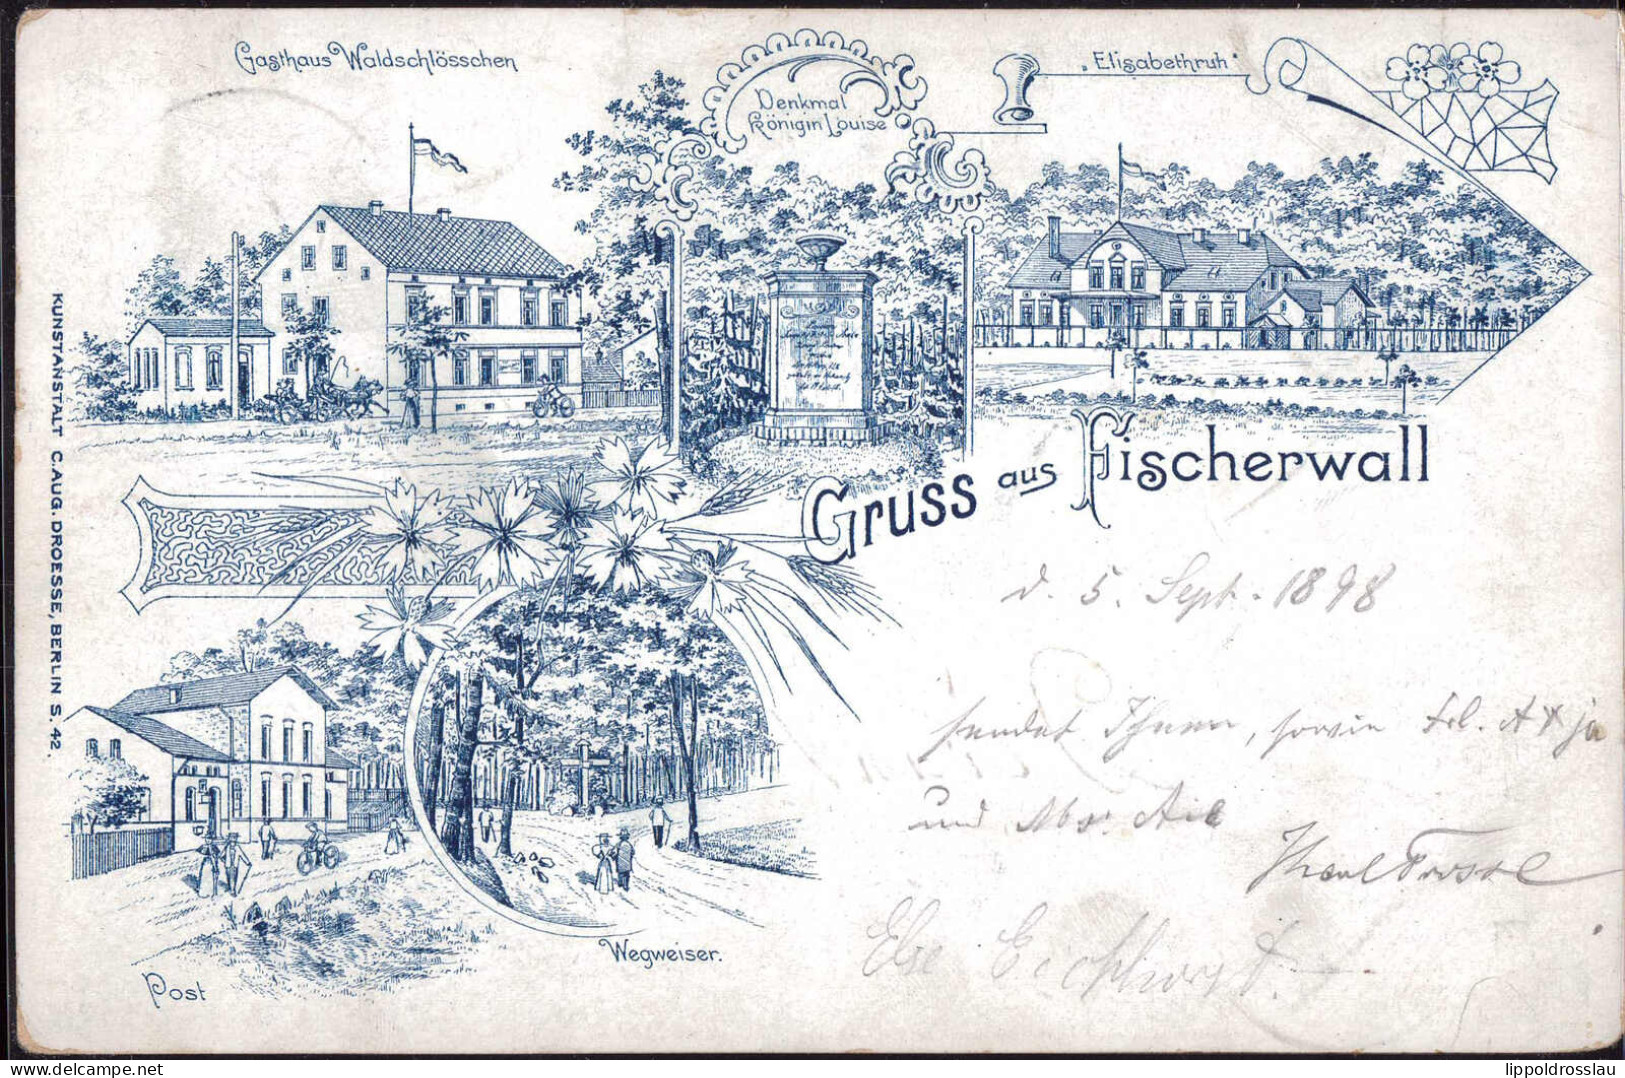 Gasthaus Waldschlösschen
Denkmal
Königin Louise
„Elisabethruh“
Gruss aus Fischerwall
d. 5. Sept. 1898
sendet Ihnen, sowie Frl.
und
Else
Wegweiser.
Post
KUNSTANSTALT C. AUG. DROESSE, BERLIN S. 42.
lippoldrosslau